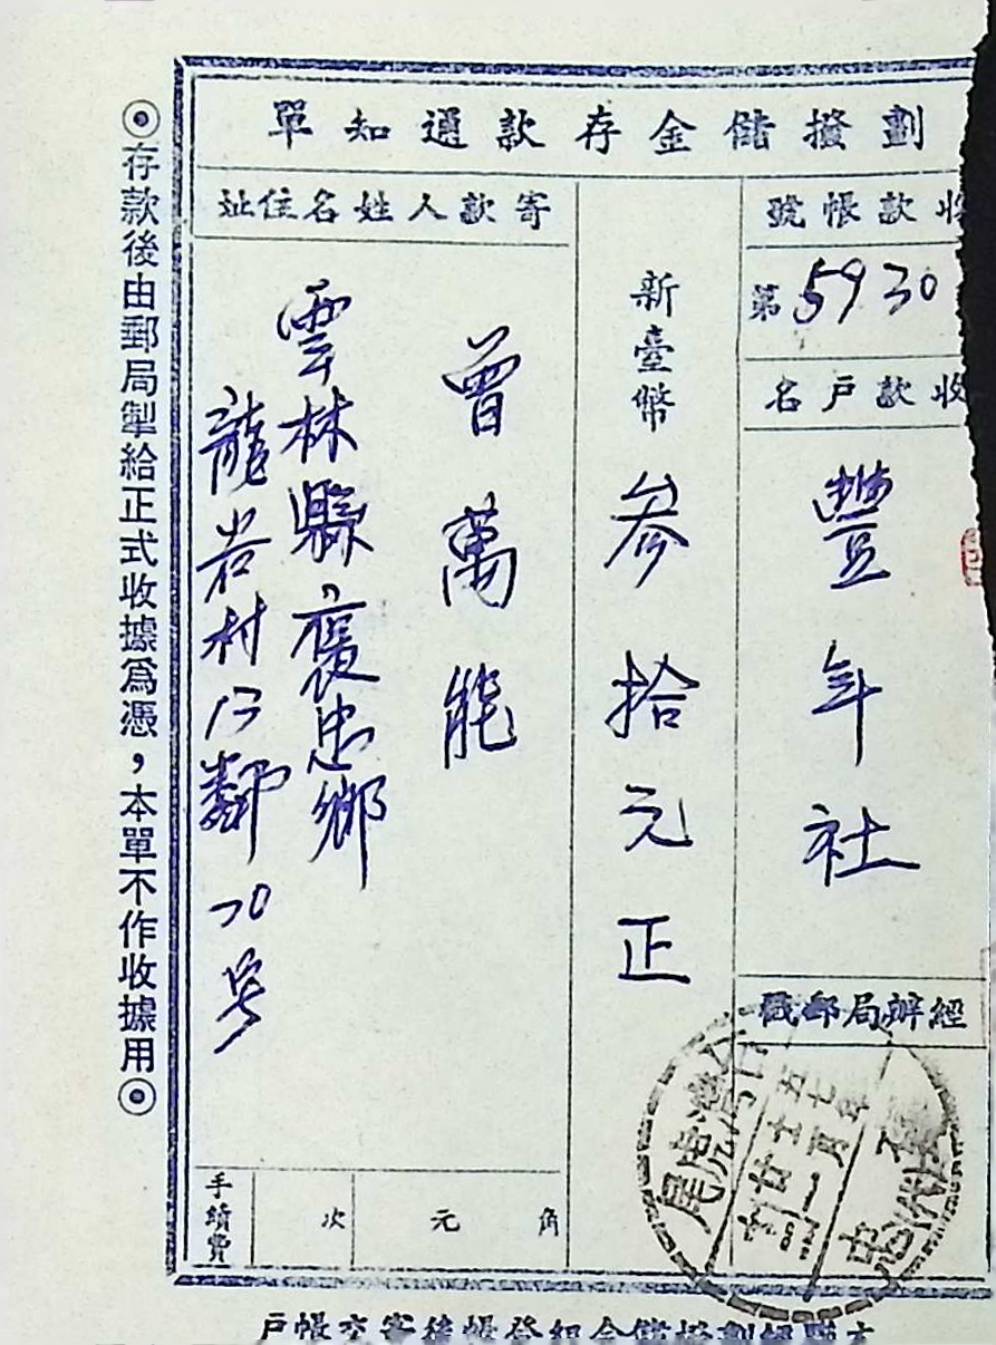 劃撥儲金存款通知單
收款帳號
第5930
收款戶名
豐年社
經辦局郵戳
新臺幣
參拾元正
寄款人姓名住址
曾萬能
雲林縣,褒忠鄉
龍岩村13鄰70号
手續費
次
元
角
◉存款後由郵局掣給正式收據為憑，本單不作收據用◉
臺灣
虎尾
五七年
忠